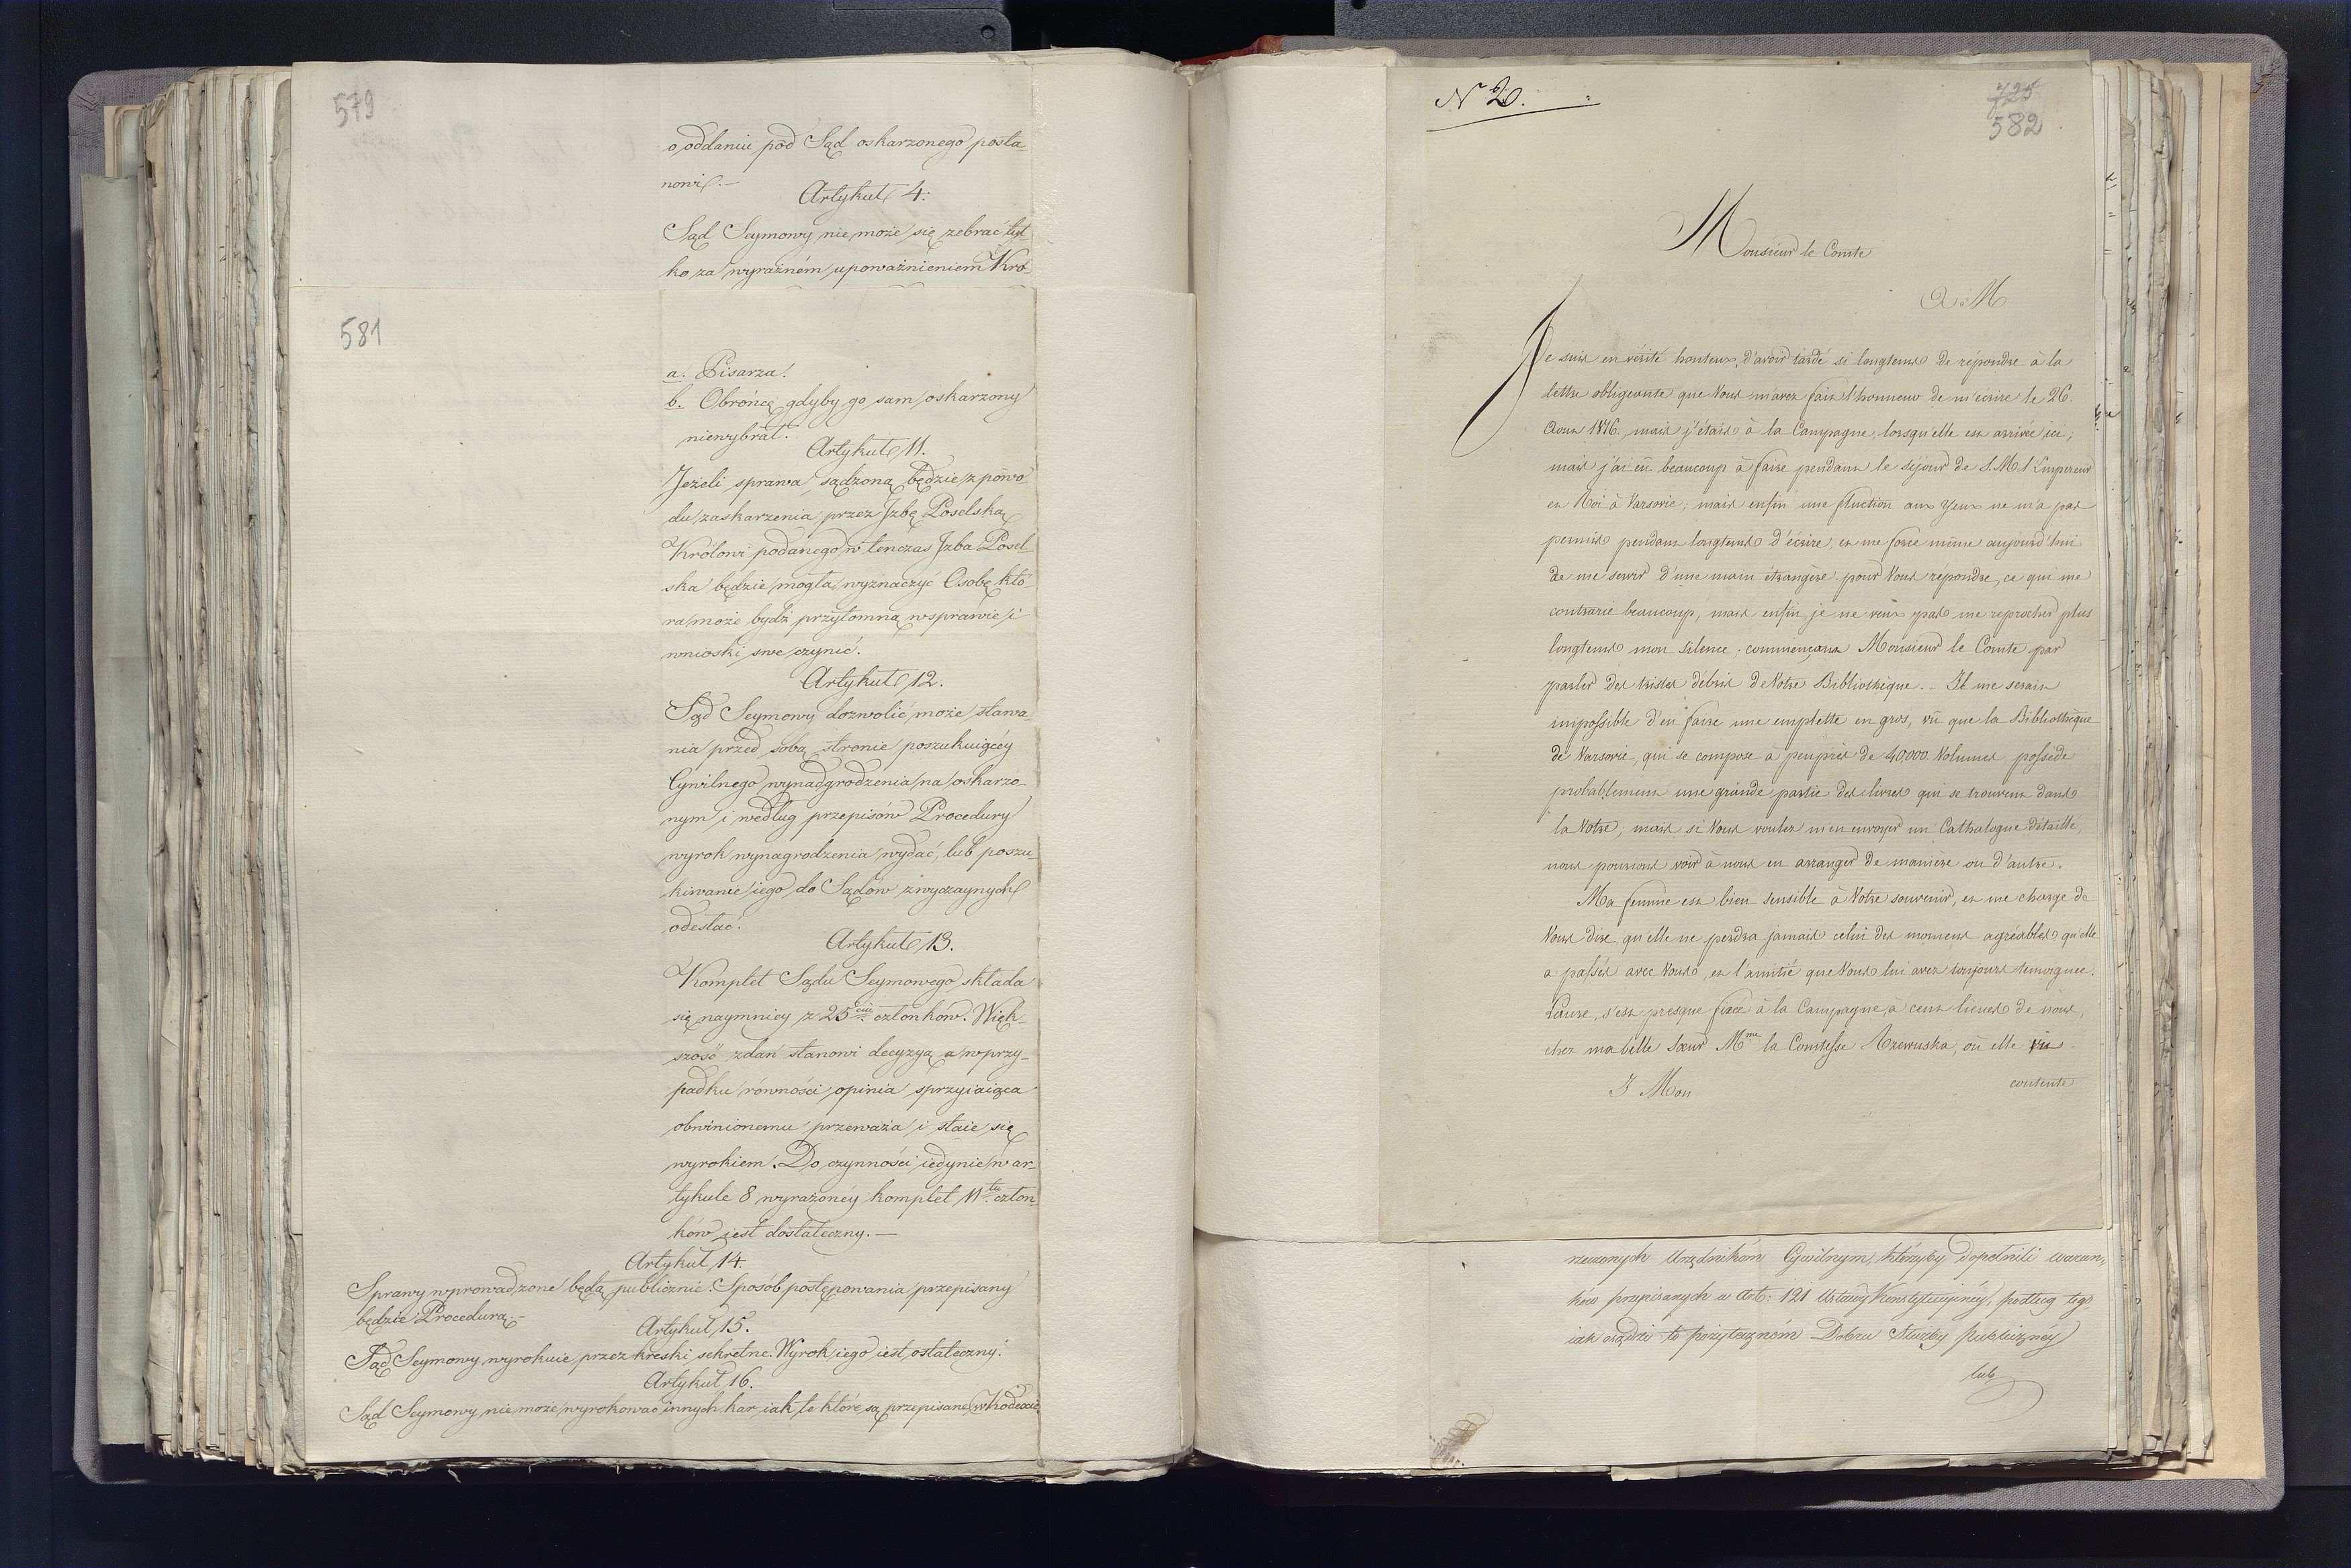 579
o oddaniu pod Sąd oskarzonego posta-
nowi.—
Artykuł 4.
Sąd Seymowy nie może się zebrać tyl-
ko za wyraźném upoważnieniem Kró-
581
a. Pisarza.
b. Obrońcę gdyby go sam oskarzony
niewybrał.
Artykuł 11.
Jeżeli sprawa sądzoną będzie z powo-
du zaskarzenia przez Jzbę Poselską
Królowi podanego w tenczas Jzba Posel-
ska będzie mogła wyznaczyć Osobę któ-
ra może bydź przytomną w sprawie i
wnioski swe czynić.
Artykuł 12.
Sąd Seymowy dozwolić może stawa-
nia przed sobą stronie poszukuiącéy
Cywilnego wynadgrodzenia na oskarzo-
nym i według przepisów Procedury
wyrok wynagrodzenia wydać, lub poszu-
kiwanie iego do Sądów zwyczaynych
odesłać.
Artykuł 13.
Komplet Sądu Seymowego składa
się naymniey z 25ciu członków. Więk-
szość zdań stanowi decyzyą a w przy-
padku równości opinia sprzyiaiąca
obwinionemu przeważa i staie się
wyrokiem. Do czynności iedynie w ar-
tykule 8 wyrażonéy komplet 11tu człon-
ków iest dostateczny.—
Artykuł 14.
Sprawy wprowadzone będą publicznie. Sposób postępowania przepisany
będzie Procedurą.—
Artykuł 15.
Sąd Seymowy wyrokuie przez kreski sekretne. Wyrok iego iest ostateczny.
Artykuł 16.
Sąd Seymowy nie może wyrokować innych kar iak te które są przepisane w Kodexie
N 20.
725
582
Monsieur le Comte
Je suis en vérité honteux, d'avoir tardé si longtems de répondre à la
lettre obligeante que Vous m'avez fait l'honneur de m'écrire le 26.
Aout 1816. mais j'étais à la Campagne, lorsqu'elle est arrivée ici;
mais j'ai eû beaucoup à faire pendant le séjour de S. M. l'Empereur
et Roi à Varsovie; mais enfin une fluction aux yeux ne m'a pas
permis pendant longtems d'écrire, et me force même aujourd'hui
de me servir d'une main étrangère pour Vous répondre, ce qui me
contrarie beaucoup, mais enfin je ne veux pas me reprocher plus
longtems mon silence; commençons Monsieur le Comte par
parler des tristes débris de Votre Bibliothèque.— Il me serait
impossible d'en faire une emplette en gros, vû que la Bibliothèque
de Varsovie, qui se compose à peuprès de 40,000 Volumes, possède
probablement une grande partie des livres qui se trouvent dans
la Votre; mais si Vous voulez m'en envoyer un Cathalogue détaillé,
nous pourrons voir à nous en arranger de manière ou d'autre.
Ma femme est bien sensible à Votre souvenir, et me charge de
Vous dire, qu'elle ne perdra jamais celui des momens agréables qu'elle
a passés avec Vous, et l'amitié que Vous lui avez toujours temoignée.
Laure, s'est presque fixée à la Campagne, à cent lieues de nous,
chez ma belle Sœur Mme la Comtesse Rzewuska, où elle vit
contente
rzeczonych Urzędnikóm Cywilnym, którzyby dopełnili warun-
ków przepisanych w Art: 121 Ustawy Konstytucyjnéy, podług tego
iak osądzi to pożyteczném Dobru Służby publicznéy
lub